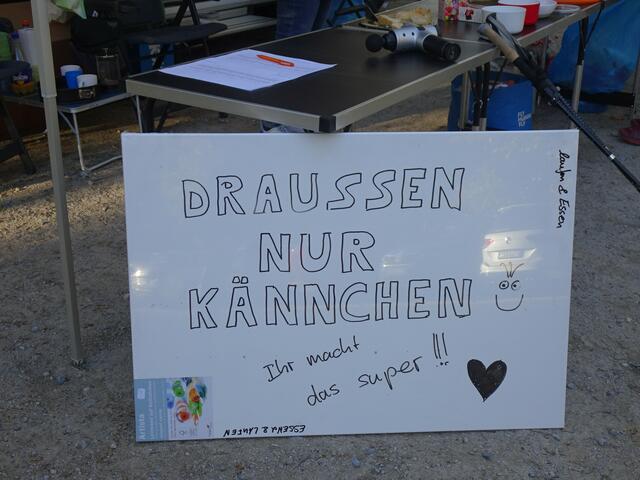 DRAUSSEN
NUR
KÄNNCHEN
Ihr macht
das super!!!
laufen & Essen
ESSEN & LAUFEN
Artista